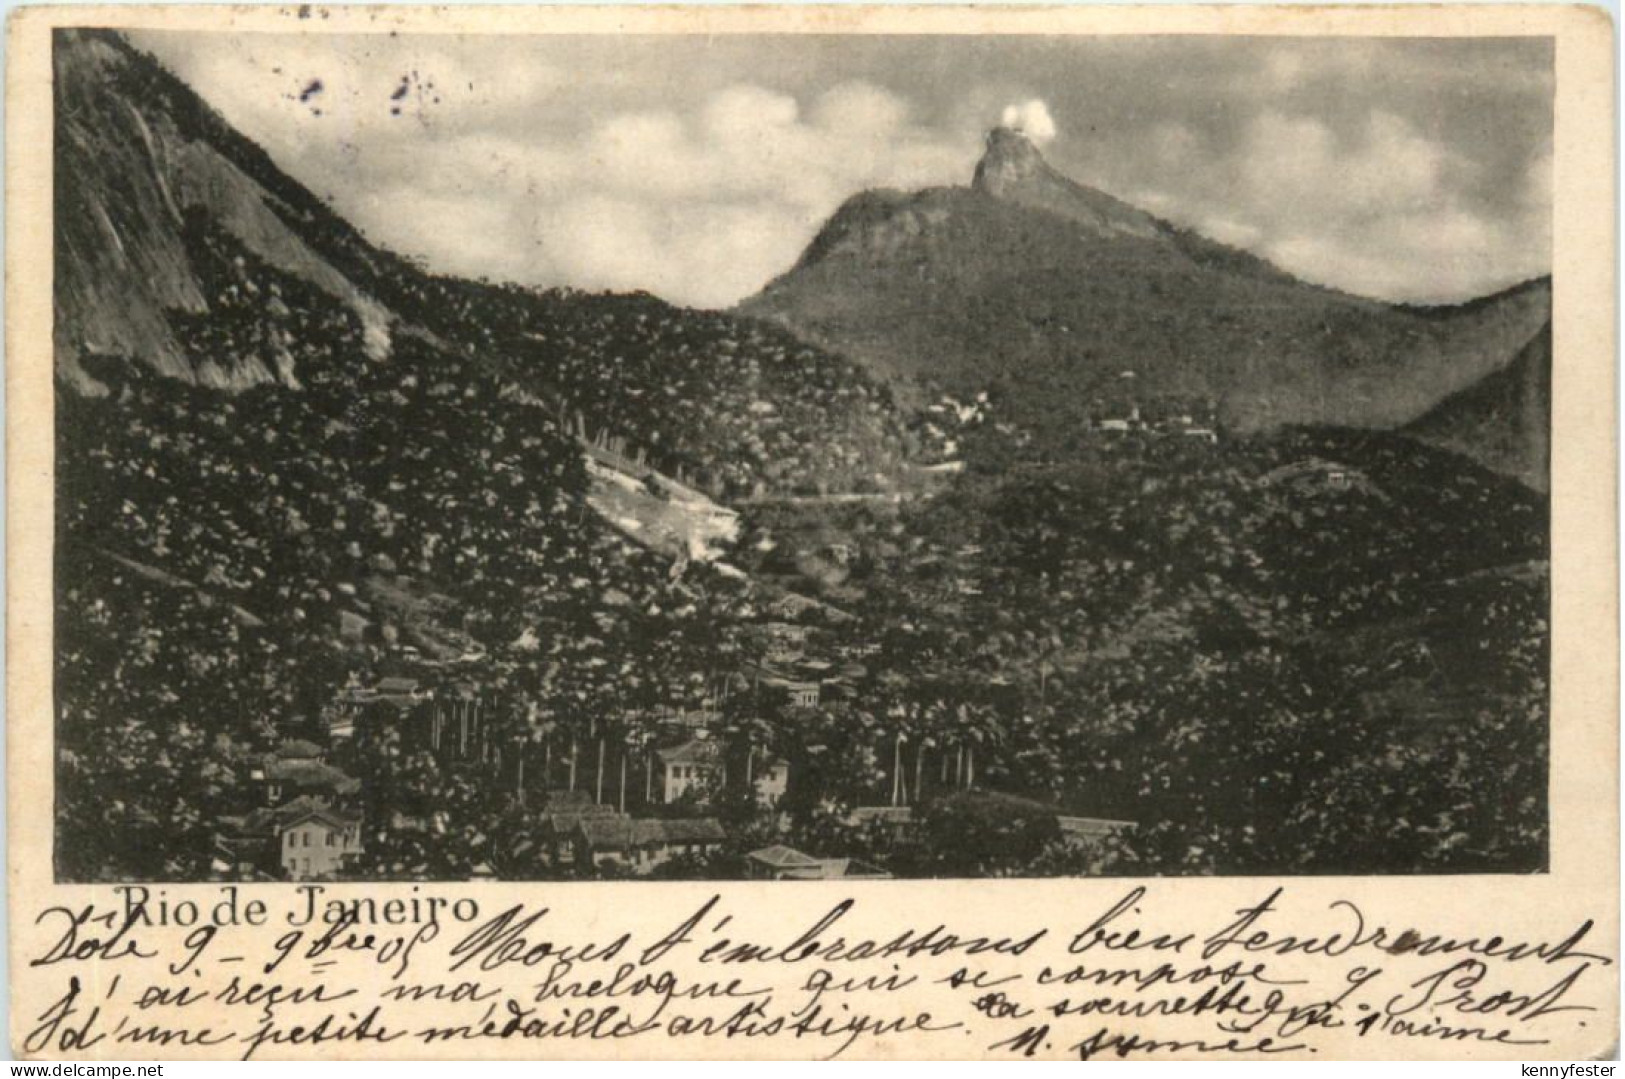 Rio de Janeiro
Dôle 9 - 9bre 05 Nous t'embrassons bien tendrement
J'ai reçu ma breloque qui se compose
d'une petite médaille artistique. La sœurette qui t'aime
Prost.
delcampe.net
kennyfester